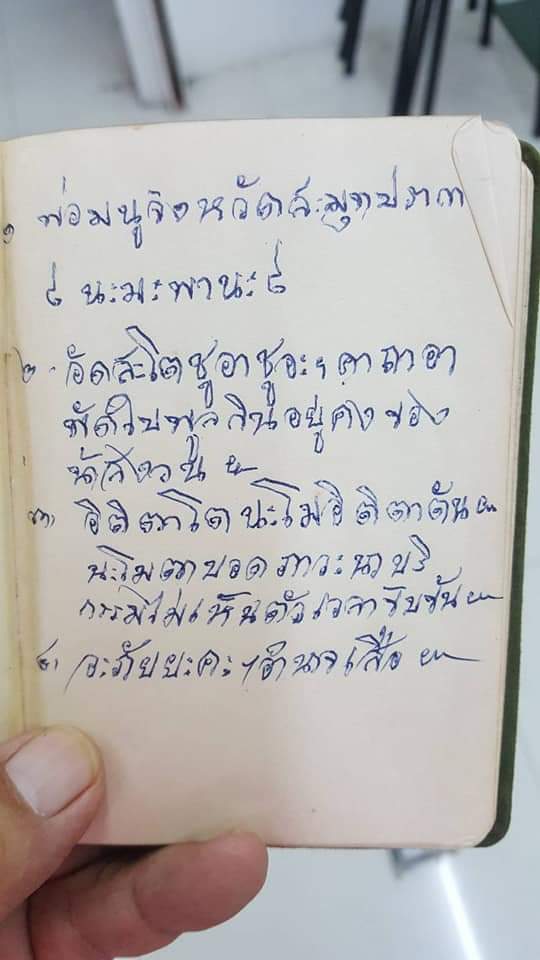 ๑ พ่อมนูจังหวัดสะมุทปราก
๔ นะมะพานะ ๔
๒. อัดสะโตชูอาชูอะฯ คาถาอา
อยู่คงของ
๓, อิติตาโตนะโมอิติตาตัน ๛
นะโมตาบอดภาวะนาบริ
กรรมไม่เห็นตัวเวลาขับขัน ๛
๔, อะภัยยะคะฯ อำนาจเสือ ๛